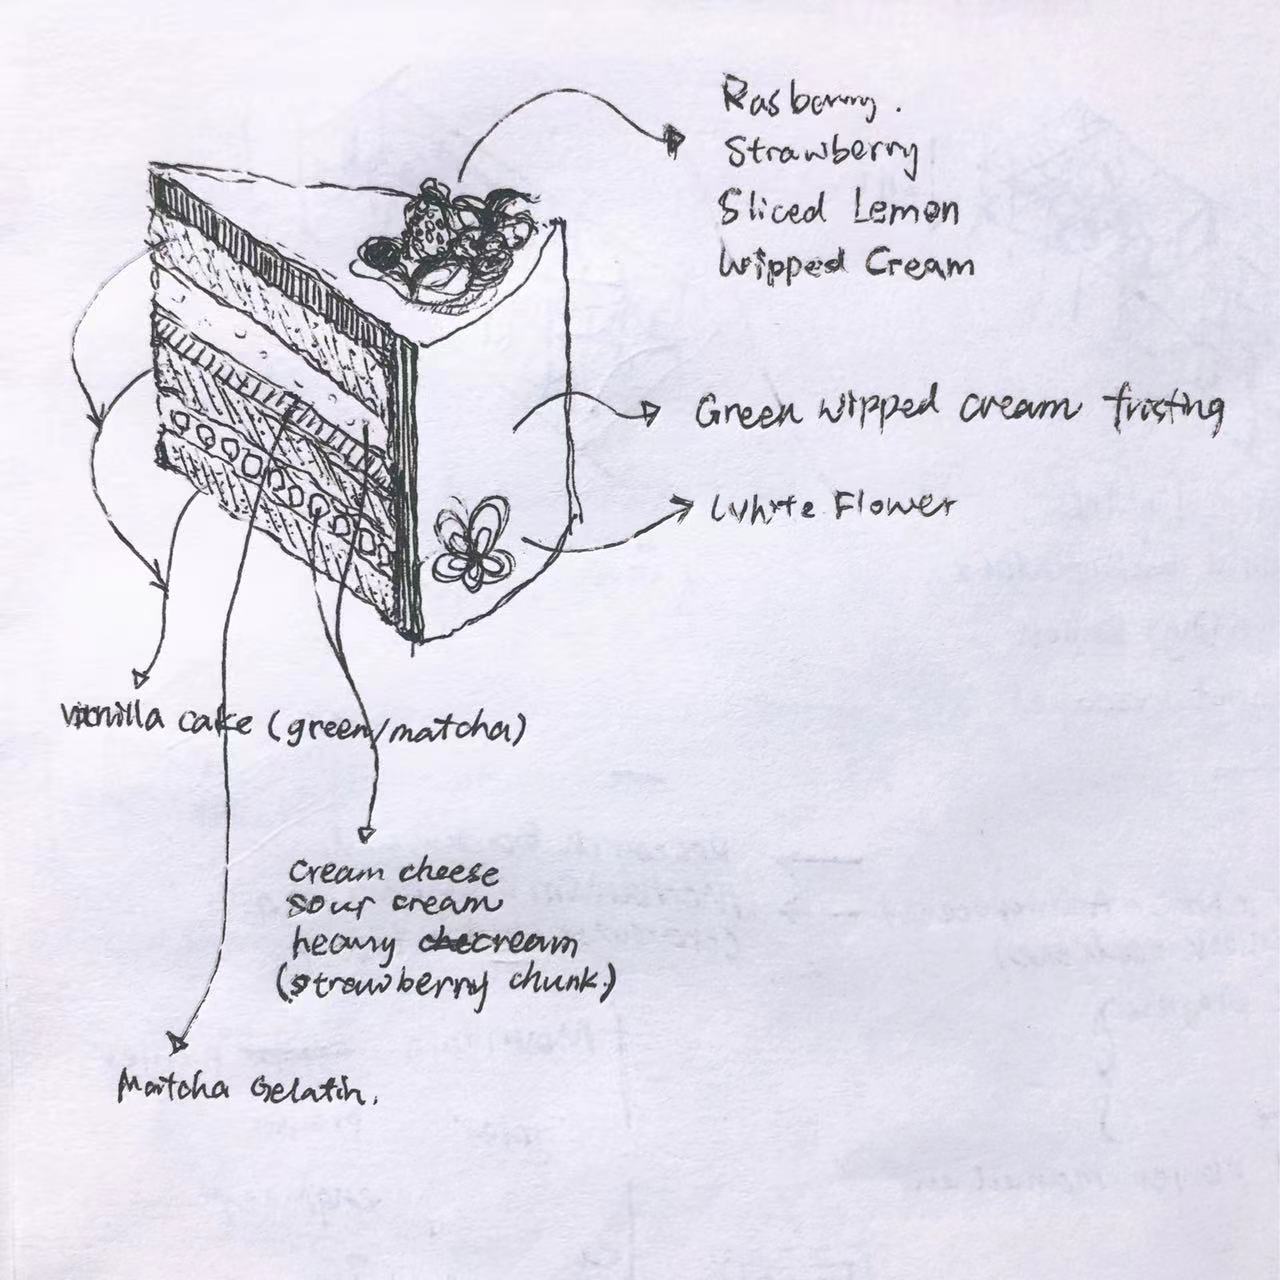 Rasberry.
Strawberry
Sliced Lemon
Wipped Cream
Green wipped cream frosting
White Flower
vanilla cake (green/matcha)
Cream cheese
sour cream
heavy cream
(strawberry chunk.)
Matcha Gelatin.